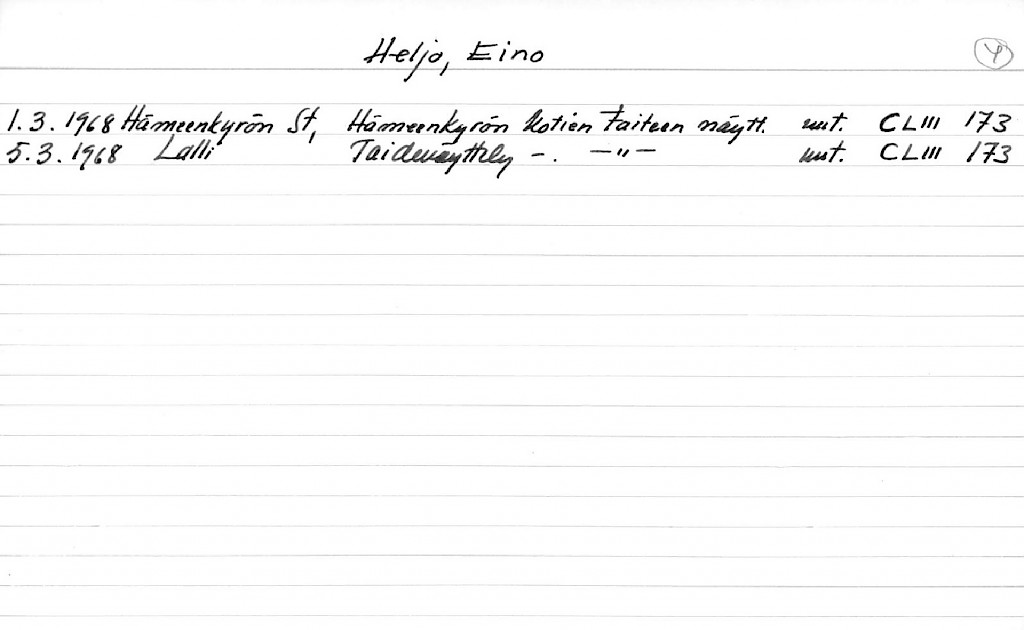 Heljo, Eino Y
1.3.1968 Hämeenkyrön St, Hämeenkyrön Kotien taiteen näytt. uut. CLIII 173
5.3.1968 Lalli Taidenäyttely -. —"— uut. CLIII 173